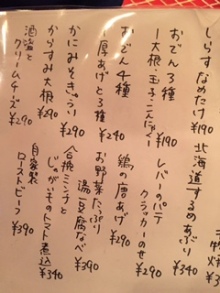 しらすなめたけ
¥190
おでん3種
ー大根・玉子・こんにゃくー
¥190
おでん4種
ー厚あげと3種
¥240
かにみそきゅうり
¥290
からすみ大根
¥290
酒盗と
クリームチーズ
¥290
北海道するめあぶり
¥340
レバーのパテ
クラッカーのせ
¥290
鶏の唐あげ
¥290
お野菜たっぷり
湯豆腐なべ
¥390
合挽ミンチと
じゃがいものトマト煮込
¥340
自家製
ローストビーフ
¥390